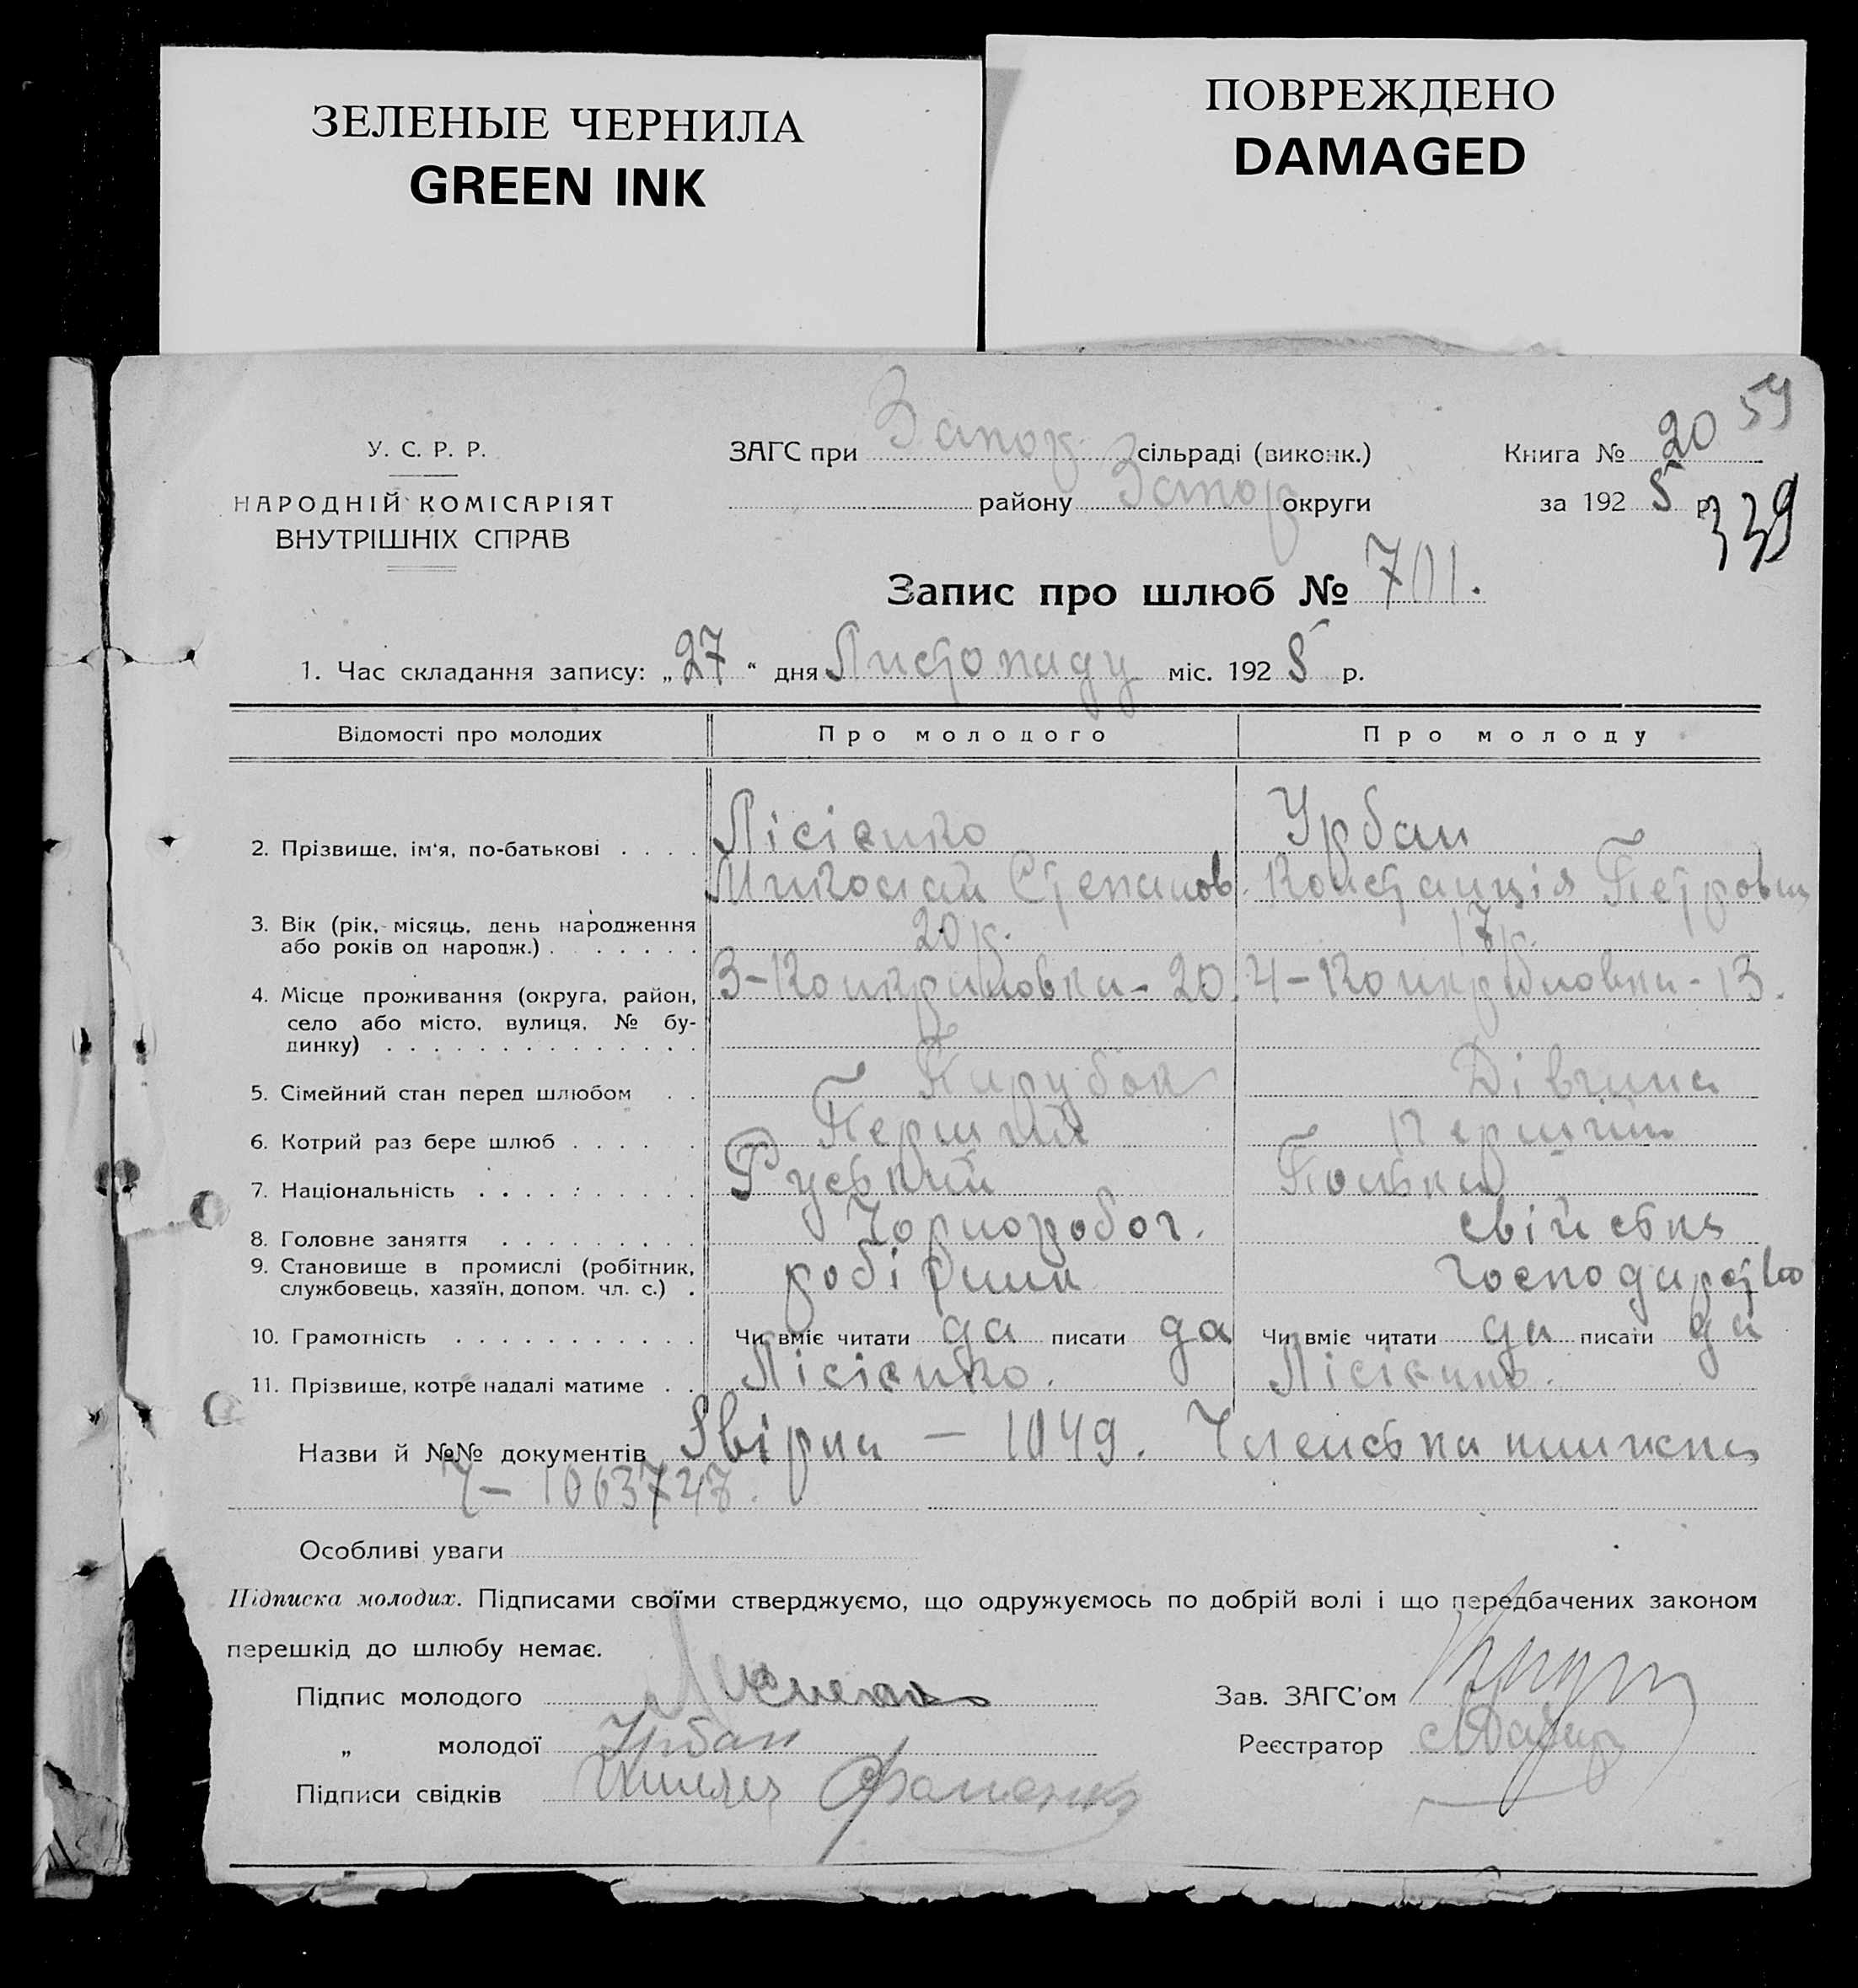 ЗЕЛЕНЫЕ ЧЕРНИЛА
GREEN INK
ПОВРЕЖДЕНО
DAMAGED
59
У. С. Р. Р.
НАРОДНІЙ КОМІСАРІЯТ
ВНУТРІШНІХ СПРАВ
ЗАГС при Запор. сільраді (виконк.)
району Запор округи
Книга № 20
за 1925 р.
339
Запис про шлюб № 701.
1. Час складання запису: „27“ дня Листопаду міс. 1925 р.
Відомості про молодих Про молодого Про молоду
2. Прізвище, ім'я, по-батькові . . . . Лісієнко Урбан
Миколай Степанов. Констанція Петровна
3. Вік (рік, місяць, день народження або років од народж.) . . . . . . . 20 р. 17 р.
4. Місце проживання (округа, район, село або місто, вулиця, № будинку) . . . . . . . . . . . . . . 20. 13.
5. Сімейний стан перед шлюбом . . Парубок Дівчина
6. Котрий раз бере шлюб . . . . . . Перший Перший
7. Національність . . . . . . . . . . Руський Полька
8. Головне заняття . . . . . . . . . Чорноробоч. свійське
9. Становище в промислі (робітник, службовець, хазяїн, допом. чл. с.) . робітник господарство
10. Грамотність . . . . . . . . . . . Чи вміє читати да писати да Чи вміє читати да писати да
11. Прізвище, котре надалі матиме . . Лісієнко. Лісієнко.
Назви й №№ документів Звірка — 1049. Членська книжка
Ч – 1063747.
Особливі уваги
Підписка молодих. Підписами своїми стверджуємо, що одружуємось по добрій волі і що передбачених законом
перешкід до шлюбу немає.
Підпис молодого
Зав. ЗАГС'ом
„ молодої Урбан
Реєстратор
Підписи свідків